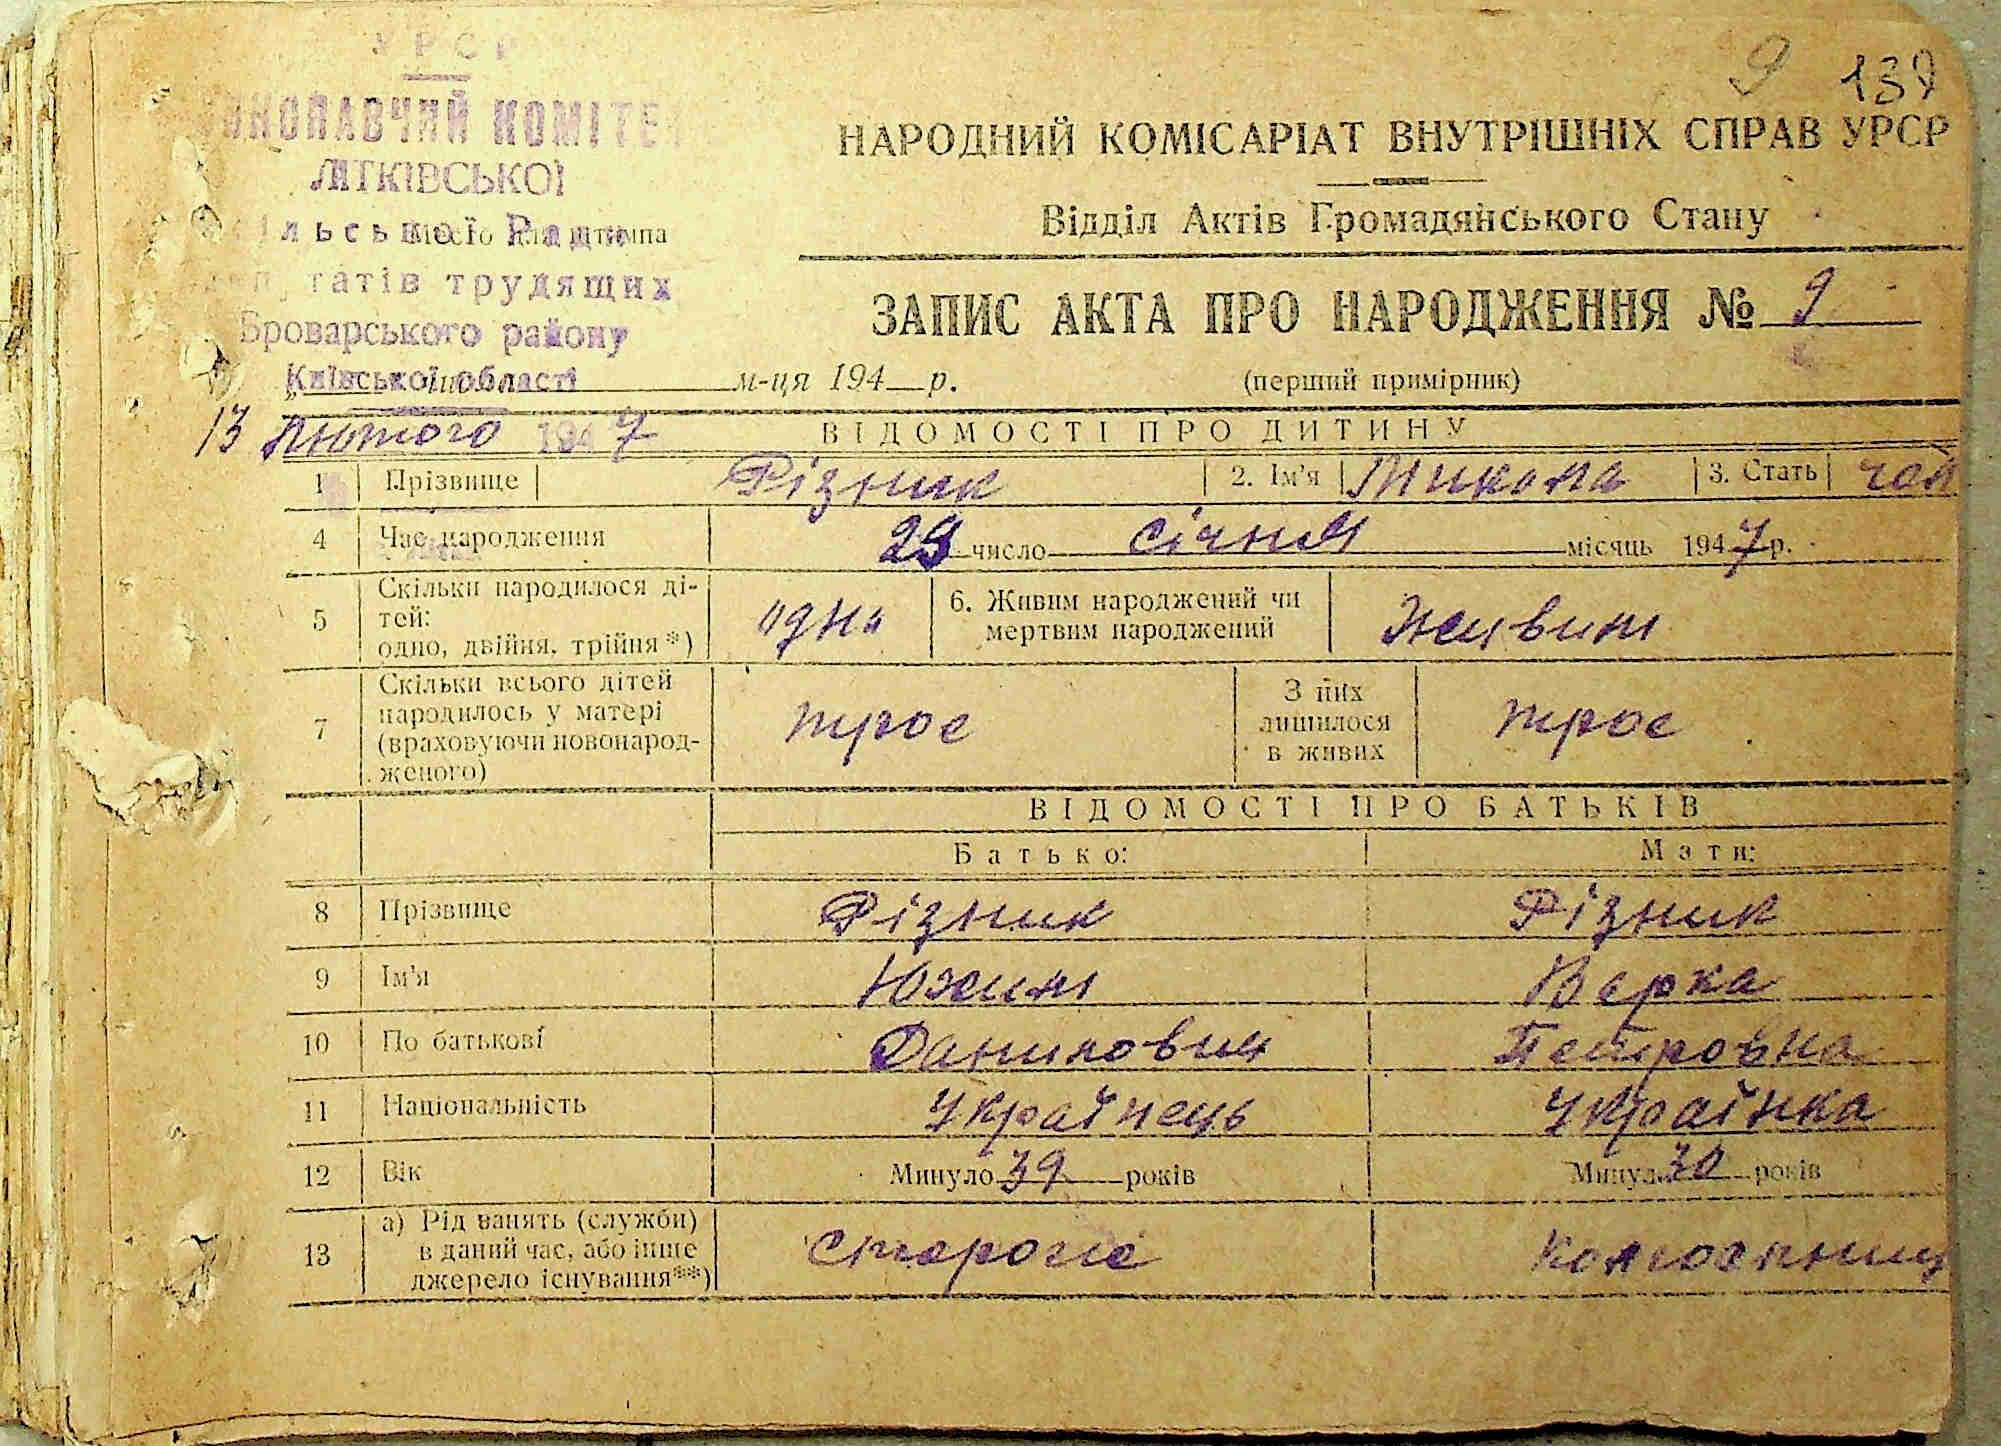 УРСР
ВИКОНАВЧИЙ КОМІТЕ
ЛІТКІВСЬКОЇ
сільської Ради
Місце для штампа
депутатів трудящих
Броварського району
Київської області
9 139
НАРОДНИЙ КОМІСАРІАТ ВНУТРІШНІХ СПРАВ УРСР
Відділ Актів Громадянського Стану
ЗАПИС АКТА ПРО НАРОДЖЕННЯ № 9
м-ця 194 р.
(перший примірник)
13 Лютого 1947
ВІДОМОСТІ ПРО ДИТИНУ
1 Прізвище Різник 2. Ім'я Микола 3. Стать чол
4 Час народження 29 число січня місяць 1947 р.
5 Скільки народилося ді-
тей:
одно, двійня, трійня*) одна
6. Живим народжений чи
мертвим народжений Живим
7 Скільки всього дітей
народилось у матері
(враховуючи новонарод-
женого) троє
З них
лишилося
в живих троє
ВІДОМОСТІ ПРО БАТЬКІВ
Батько: Мати:
8 Прізвище Різник Різник
9 Ім'я Юхим Вєрка
10 По батькові Данилович Петровна
11 Національність Українець Українка
12 Вік Минуло 39 років Минуло 30 років
13 а) Рід занять (служби)
в даний час, або інше
джерело існування**) Сторож Колгоспниц